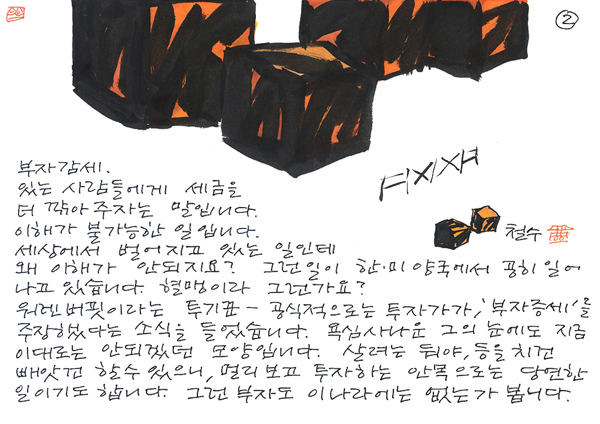 ②
부자감세.
있는 사람들에게 세금을
더 깎아 주자는 말입니다.
이해가 불가능한 일입니다.
세상에서 벌어지고 있는 일인데
왜 이해가 안되지요? 그런일이 한·미 양국에서 공히 일어
나고 있습니다. 혈맹이라 그런가요?
워렌버핏이라는 투기꾼 – 공식적으로는 투자가가, '부자증세'를
주장했다는 소식을 들었습니다. 욕심사나운 그의 눈에도 지금
이대로는 안되겠던 모양입니다. 살려는 둬야, 등을 치건
빼앗건 할수 있으니, 멀리 보고 투자하는 안목으로는 당연한
일이기도 합니다. 그런 부자도 이나라에는 없는가 봅니다.
철수